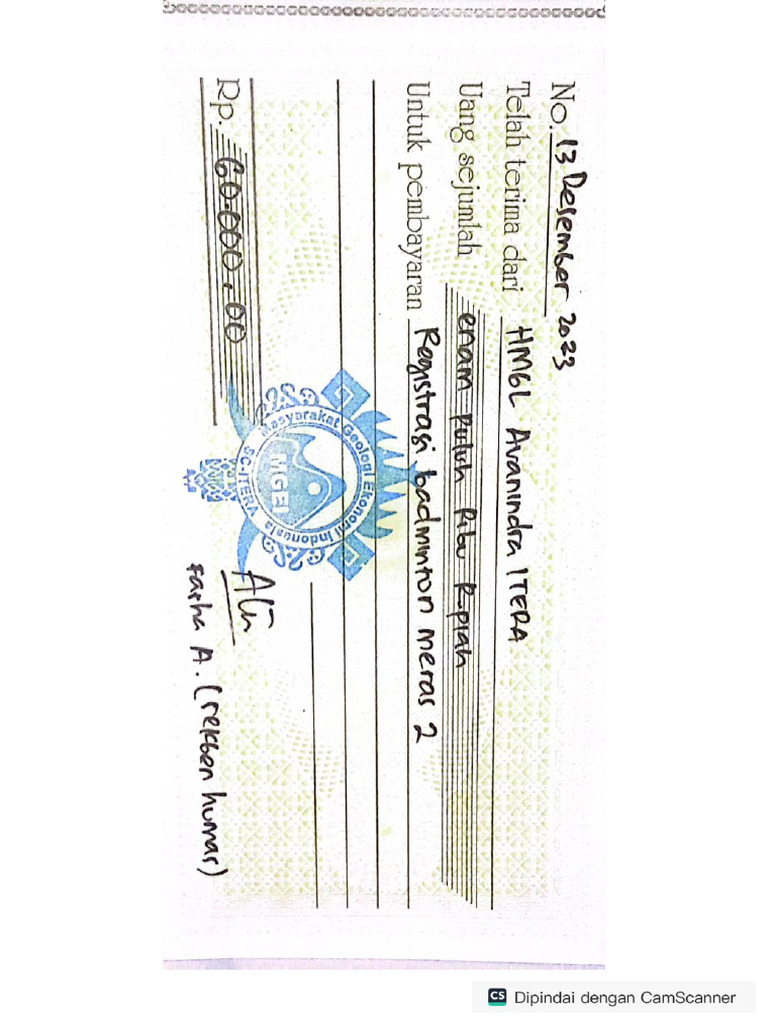 No. 13 Desember 2023
Telah terima dari HMGL Avanindra ITERA
Uang sejumlah enam puluh Ribu Rupiah
Untuk pembayaran Registrasi badminton meras 2
Rp. 60.000,00
Masyarakat Geologi Ekonomi Indonesia
MGEI
SC-ITERA
Farha A. (rekben humas)
CS Dipindai dengan CamScanner